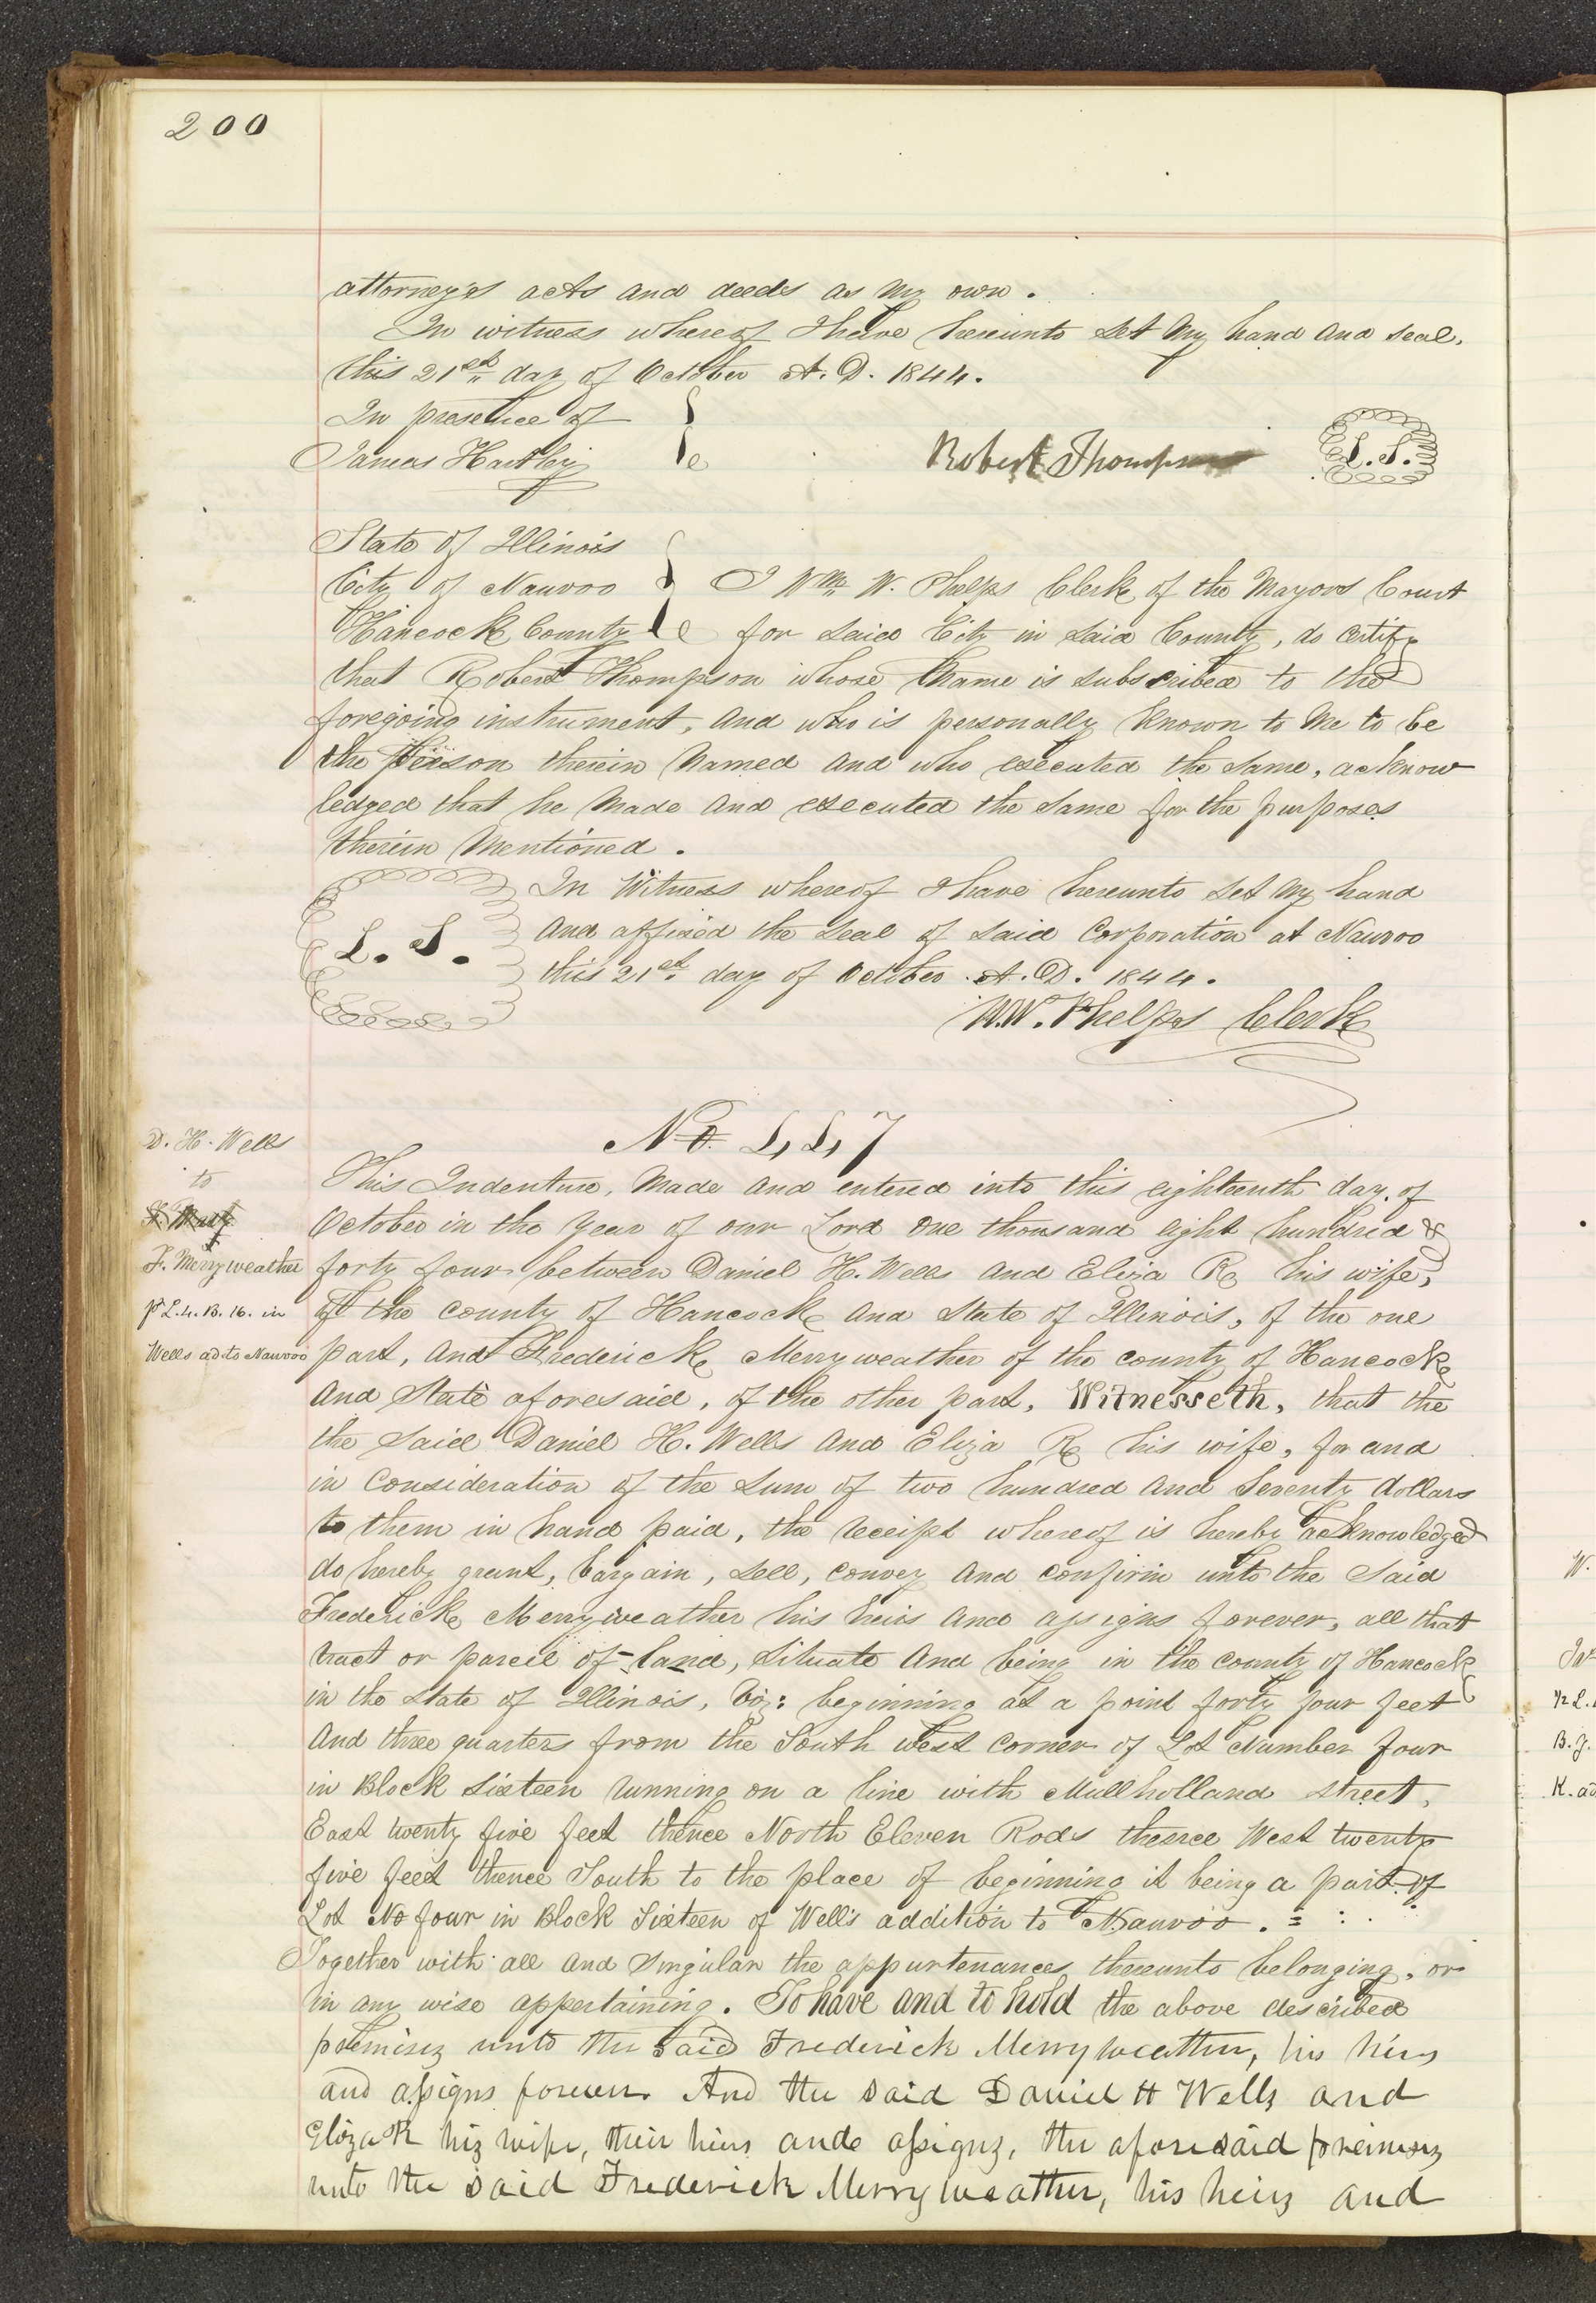 200
attorney's acts and deeds as my own.
In witness whereof I have hereunto set my hand and seal,
this 21st day of October A. D. 1844.
In presence of
James Hartley
Robert Thompson
L. S.
State of Illinois
City of Nauvoo
Hancock County
I Wm W. Phelps Clerk of the Mayors Court
for said City in said County, do certify
that Robert Thompson whose name is subscribed to the
foregoing instrument, and who is personally known to me to be
the person therein named and who executed the same, acknow
ledged that he made and executed the same for the purposes
therein mentioned.
L. S.
In Witness whereof I have hereunto set my hand
and affixed the seal of said Corporation at Nauvoo
this 21st day of October A. D. 1844.
W. W. Phelps Clerk
No 447
D. H. Wells
to
F. Merryweather
pt L. 4. B. 16. in
Wells ad to Nauvoo
This Indenture, made and entered into this eighteenth day of
October in the year of our Lord one thousand eight hundred &
forty four between Daniel H. Wells and Eliza R his wife,
of the county of Hancock and State of Illinois, of the one
part, and Frederick Merryweather of the county of Hancock
and State aforesaid, of the other part, Witnesseth, that the
the said Daniel H. Wells and Eliza R his wife, for and
in consideration of the sum of two hundred and seventy dollars
to them in hand paid, the receipt whereof is hereby acknowledged
do hereby grant, bargain, sell, convey and confirm unto the said
Frederick Merryweather his heirs and assigns forever, all that
tract or parcel of land, situate and being in the county of Hancock
in the state of Illinois, viz: beginning at a point forty four feet
and three quarters from the South west corner of Lot Number four
in Block sixteen running on a line with Mullholland street,
East twenty five feet thence North Eleven Rods thence West twenty
five feet thence South to the place of beginning it being a part of
Lot No four in Block Sixteen of Well's addition to Nauvoo.
Together with all and singular the appurtenances thereunto belonging, or
in any wise appertaining. To have and to hold the above described
premises unto the said Frederick Merryweather, his heirs
and assigns forever. And the said Daniel H Wells and
Eliza R his wife, their heirs ande assigns, the aforesaid premises
unto the said Frederick Merryweather, his heirs and
W.
B. J.
K. ad